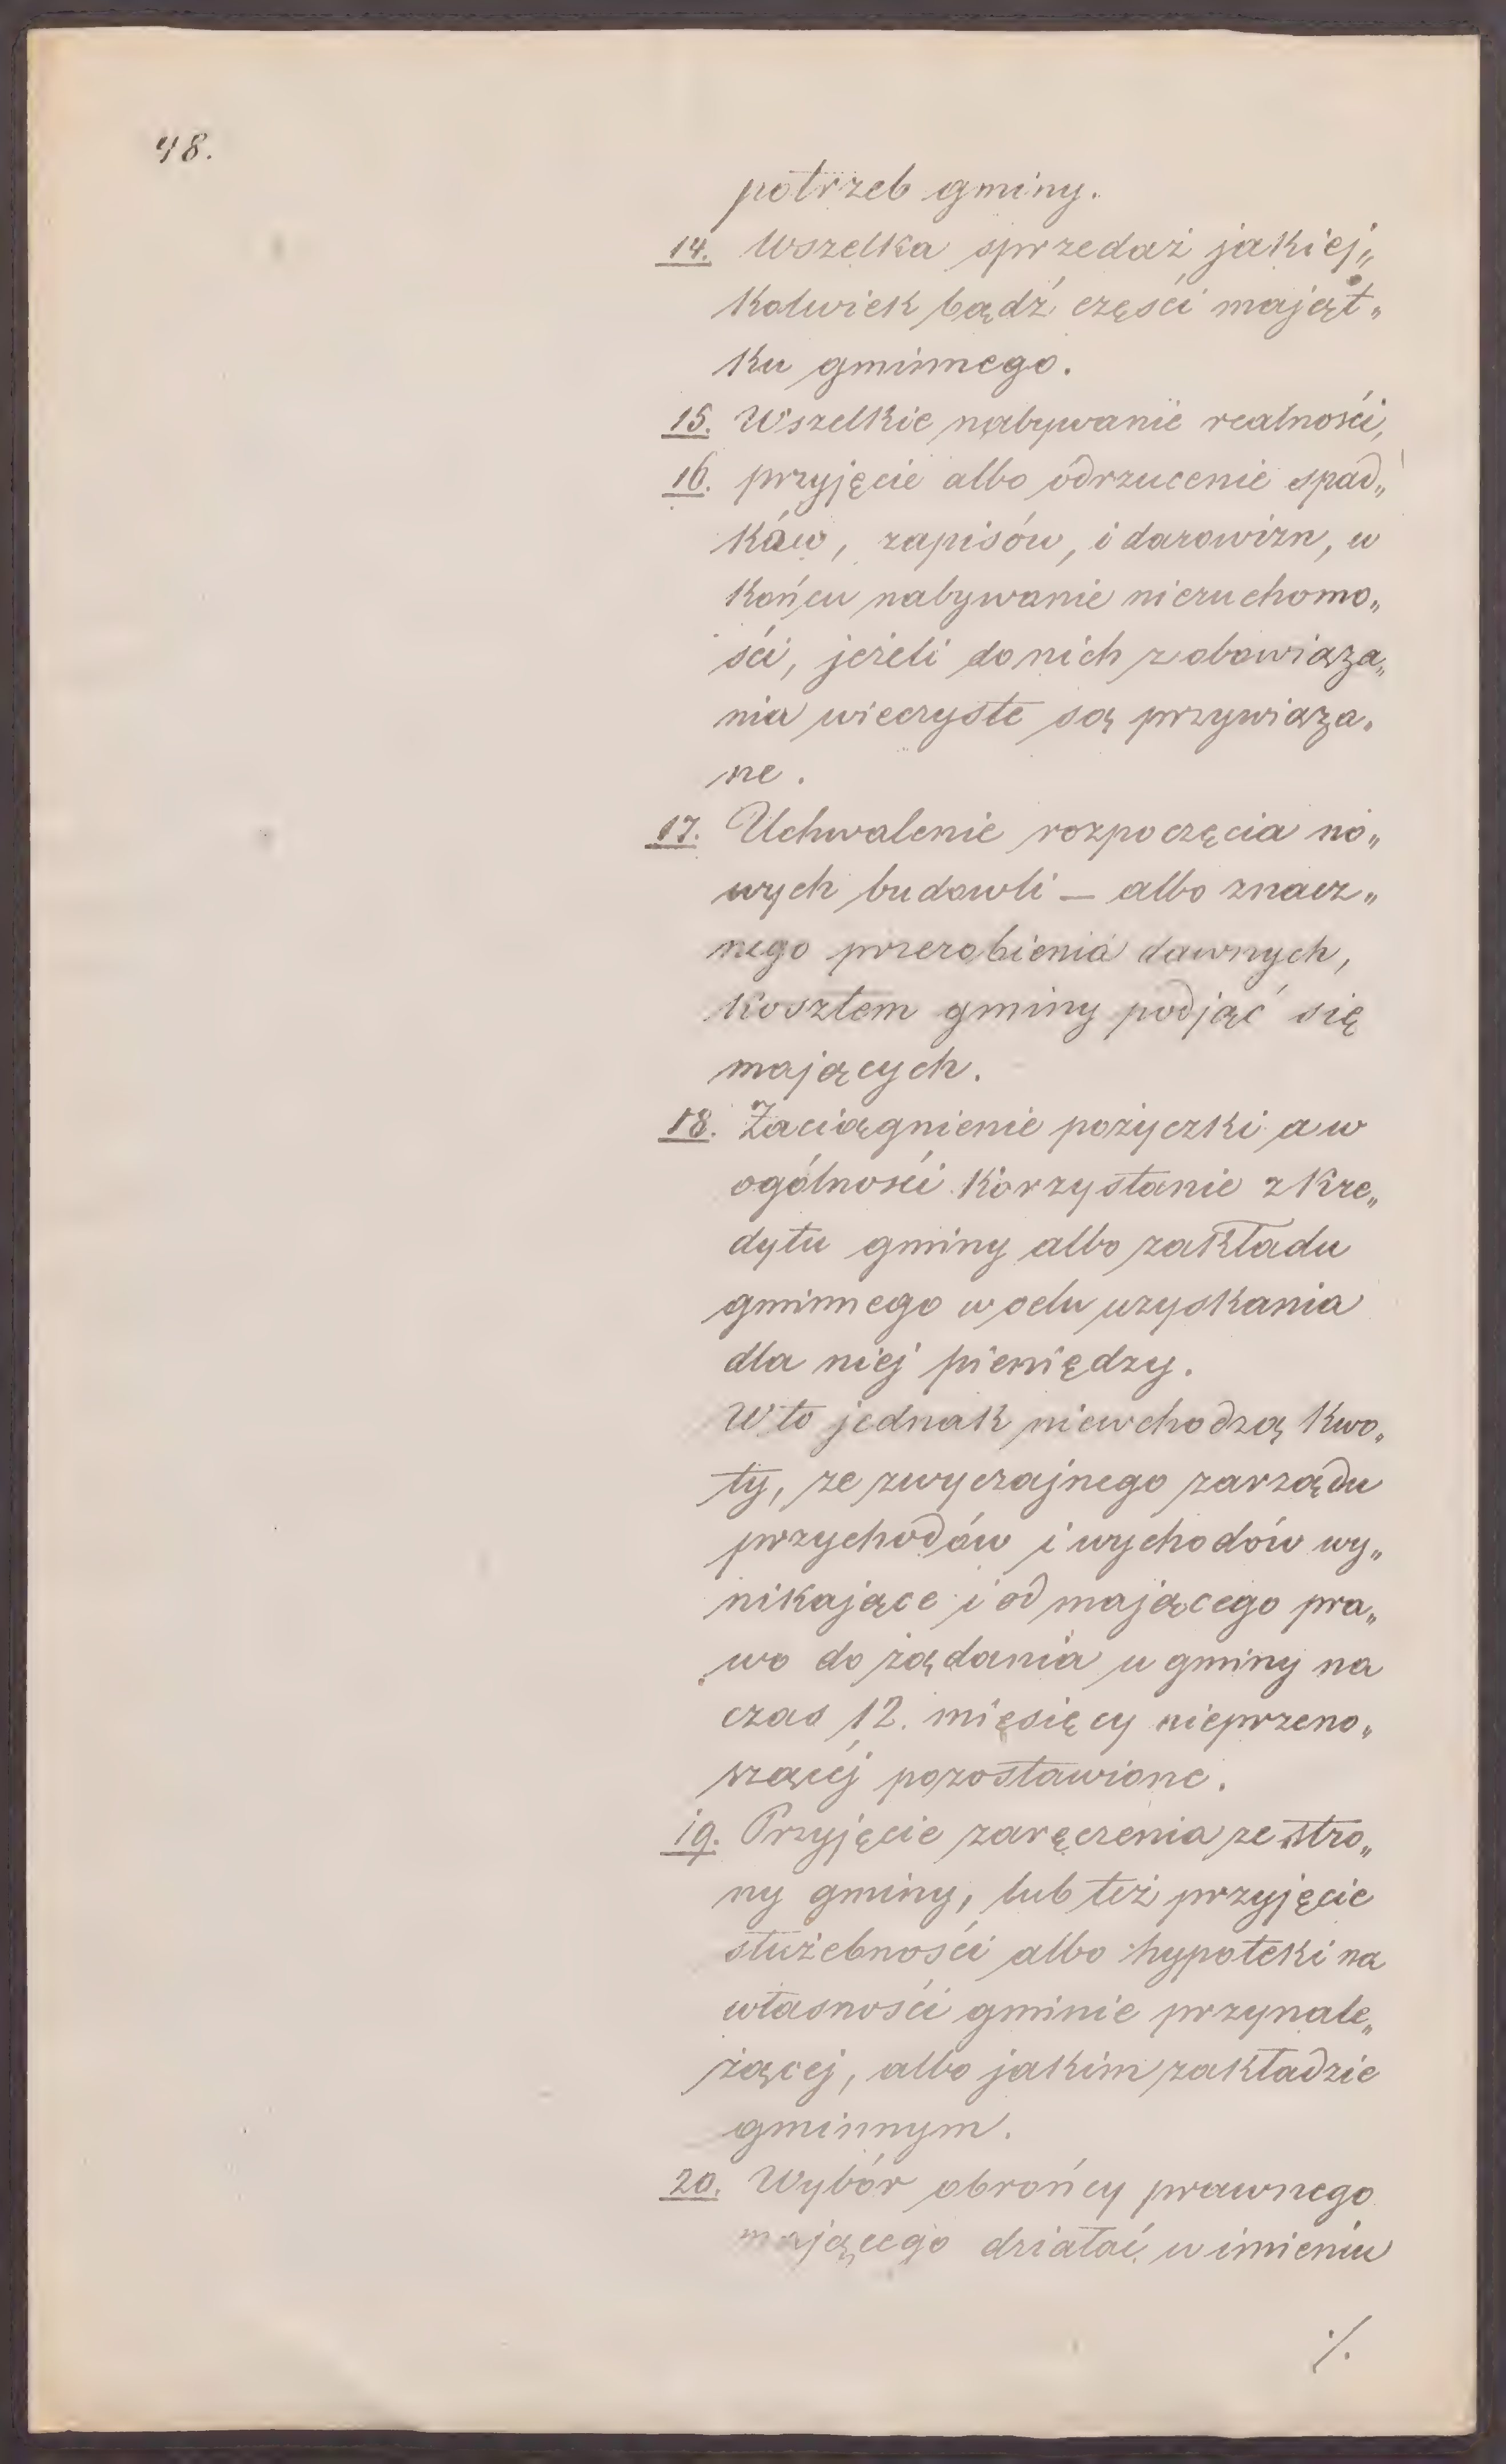 48.
potrzeb gminy.
14. Wszelka sprzedaż jakiej„
kolwiek bądź części mająt„
ku gminnego.
15. Wszelkie nabywanie realności,
16. przyjęcie albo odrzucenie spad„
ków, zapisów, i darowizn, w
końcu nabywanie nieruchomo„
ści, jeżeli do nich zobowiąza„
nia wieczyste są przywiąza„
ne.
17. Uchwalenie rozpoczęcia no„
wych budowli – albo znacz„
nego przerobienia dawnych,
kosztem gminy podjąć się
mających.
18. Zaciągnienie pożyczki a w
ogólności korzystanie z kre„
dytu gminy albo zakładu
gminnego w celu uzyskania
dla niej pieniędzy.
W to jednak niewchodzą kwo„
ty, ze zwyczajnego zarządu
przychodów i wychodów wy„
nikające i od mającego pra„
wo do żądania u gminy na
czas 12. miesięcy nieprzeno„
szącéj pozostawione.
19. Przyjęcie zaręczenia ze stro„
ny gminy, lub też przyjęcie
służebności albo hypoteki na
własności gminie przynale„
żącej, albo jakim zakładzie
gminnym.
20. Wybór obrońcy prawnego
mającego działać w imieniu
./.